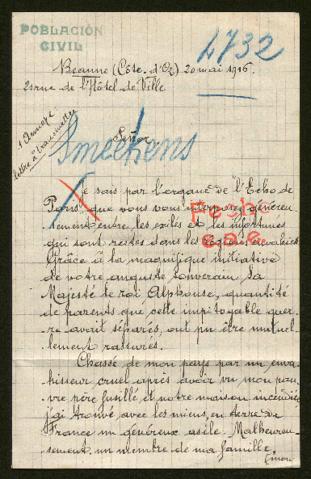 POBLACIÓN
CIVIL
4732
Beaune (Côte-d'Or) 20 mai 1916.
21 rue de l'Hôtel de Ville
1 Annexe
lettre à transmettre
Señor
Smeekens
Je sais par l'organe de l'Echo de
Paris que vous vous interposez généreu
sement entre les exilés et les infortunés
qui sont restés dans les régions envahies
Grâce à la magnifique initiative
de votre auguste souverain Sa
Majesté le roi Alphonse, quantité
de parents que cette impitoyable guer
re avait séparés, ont pu être mutuel
lement rassurés.
Chassé de mon pays par un enva
hisseur cruel après avoir vu mon pau
vre père fusillé et notre maison incendiée
j'ai trouvé avec les miens, en terre de
France un généreux asile. Malheureu
sement un membre de ma famille,